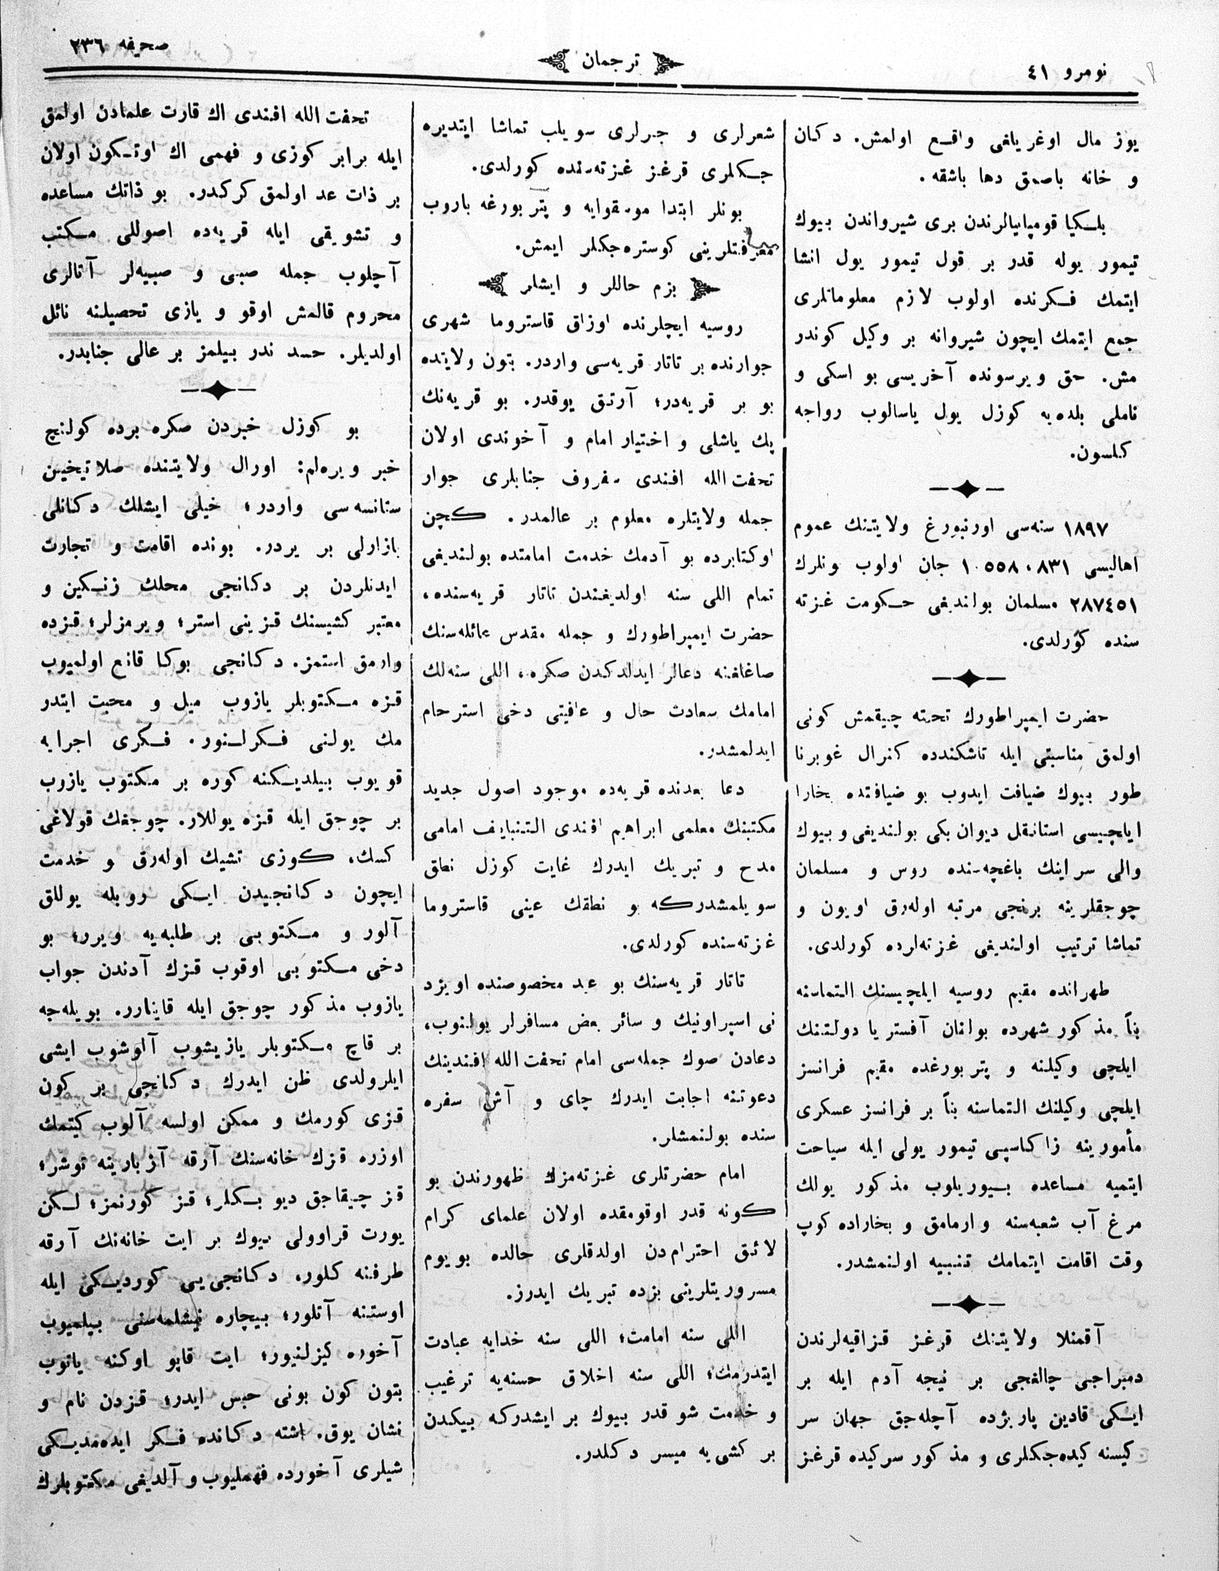 نومرو ٤١
ترجمان
صحیفه ٢٣٦
یوز مال اوغریاغی واقع اولمش. دکان
و خانه باصمق دها باشقه.
بلکیا قومپانیالرندن بری شیرواندن بیوك
تیمور یوله قدر بر قول تیمور یول انشا
ایتمك فکرنده اولوب لازم معلوماتلری
جمع ایتمك ایچون شیروانه بر وکیل کوندر
مش. حق ویرسونده آخریسی بو اسکی و
ناملی بلده‌یه کوزل یول یاسالوب رواجه
کلسون.
١٨٩٧ سنه‌سی اورنبورغ ولایتنك عموم
اهالیسی ١٠٥٥٨٠٨٣١ جان اولوب ونلرك
٢٨٧٤٥١ مسلمان بولندیغی حکومت غزته
سنده کورلدی.
حضرت ایمپراطورك تخته چیقمش کونی
اولمق مناسبتی ایله تاشکندده کنرال غوبرنا
طور بیوك ضیافت ایدوب بو ضیافتده بخارا
ایلچیسی استانقل دیوان بکی بولندیغی و بیوك
والی سراینك باغچه‌سنده روس و مسلمان
چوجقلرینه برنجی مرتبه اوله‌رق اویون و
تماشا ترتیب اولندیغی غزته‌لرده کورلدی.
طهرانده مقیم روسیه ایلچیسنك التماسنه
بناً مذکور شهرده بولنان آفستریا دولتنك
ایلچی وکیلنه و پتربورغده مقیم فرانسز
ایلچی وکیلنك التماسنه بناً بر فرانسز عسکری
مأمورینه زاکاسپی تیمور یولی ایله سیاحت
ایتمیه مساعده بیوریلوب مذکور یولك
مرغ آب شعبه‌سنه وارمامق و بخاراده کوپ
وقت اقامت ایتمامك تنبیه اولنمشدر.
آقمنلا ولایتنك قرغز قزاقیه‌لرندن
دمبراجی چالغجی بر نیجه آدم ایله بر
ایکی قادین پاریژده آچله‌جق جهان سر
کیسنه کیده‌جکلری و مذکور سرکیده قرغز
شعرلری و جرلری سویلب تماشا ایتدیره
جکلری قرغز غزته‌سنده کورلدی.
بونلر ابتدا موسقوایه و پتربورغه باروب
معرفتلرینی کوستره‌جکلر ایمش.
بزم حاللر و ایشلر
روسیه ایچلرنده اوزاق قاستروما شهری
جوارنده بر تاتار قریه‌سی واردر. بتون ولایتده
بو بر قریه‌در؛ آرتق یوقدر. بو قریه‌نك
پك یاشلی و اختیار امام و آخوندی اولان
تحفت الله افندی سفروف جنابلری جوار
جمله ولایتلره معلوم بر عالمدر. کچن
اوکتابرده بو آدمك خدمت امامتده بولندیغی
تمام اللی سنه اولدیغندن تاتار قریه‌سنده،
حضرت ایمپراطورك و جمله مقدس عائله‌سنك
صاغلغنه دعالر ایدلدکدن صکره، اللی سنه‌لك
امامك سعادت حال و عافیتی دخی استرحام
ایدلمشدر.
دعا بعدنده قریه‌ده موجود اصول جدید
مکتبنك معلمی ابراهیم افندی التنبایف امامی
مدح و تبریك ایدرك غایت کوزل نطق
سویلمشدرکه و نطقك عینی قاستروما
غزته‌سنده کورلدی.
تاتار قریه‌سنك بو عید مخصوصنده اویزد
نی اسپراونیك و سائر بعض مسافرلر بولنوب،
دعادن صوك جمله‌سی امام تحفت الله افندینك
دعوتنه اجابت ایدرك چای و آش سفره
سنده بولنمشلر.
امام حضرتلری غزته‌مزك ظهورندن بو
کونه قدر اوقومقده اولان علمای کرام
لائق احترام‌دن اولدقلری حالده بو یوم
مسروریتلرینی بزده تبریك ایدرز.
اللی سنه امامت؛ اللی سنه خدایه عبادت
ایتدرمك؛ اللی سنه اخلاق حسنه‌یه ترغیب
و خدمت شو قدر بیوك بر ایشدرکه بیکدن
بر کشی‌یه میسر دکلدر.
تحفت الله افندی اك قارت علمادن اولمق
ایله برابر کوزی و فهمی اك اوتکون اولان
بر ذات عد اولمق کرکدر. بو ذاتك مساعده
و تشویقی ایله قریه‌ده اصوللی مکتب
آچلوب جمله صبی و صبیه‌لر آنالری
محروم قالمش اوقو و یازی تحصیلنه نائل
اولدیلر. حسد ندر بیلمز بر عالی جنابدر.
بو کوزل خبردن صکره برده کولنچ
خبر ویره‌لم: اورال ولایتنده صلاتیخین
ستانسه‌سی واردر؛ خیلی ایشلك دکانلی
بازارلی بر یردر. بونده اقامت و تجارت
ایدنلردن بر دکانجی محلك زنکین و
معتبر کشیسنك قزینی استر؛ ویرمزلر؛ قزده
وارمق استمز. دکانجی بوکا قانع اولمیوب
قزه مکتوبلر یازوب میل و محبت ایتدر
مك یولنی فکرلنور. فکری اجرایه
قویوب بیلدیکنه کوره بر مکتوب یازرب
بر چوجق ایله قزه یوللار. چوجقك قولاغی
کسك، کوزی تشیك اوله‌رق و خدمت
ایچون دکانجیدن ایکی روبله یوللق
آلور و مکتوبی بر طلبه‌یه ویرر؛ بو
دخی مکتوبی اوقوب قزك آدندن جواب
یازوب مذکور چوجق ایله قایتارر. بویله‌جه
بر قاچ مکتوبلر یازیشوب آلوشوب ایشی
ایلرولدی ظن ایدرك دکانجی بر کون
قزی کورمك و ممکن اولسه آلوب کیتمك
اوزره قزك خانه‌سنك آرقه آزبارینه توشر؛
قز چیقاجق دیو بکلر؛ قز کورنمز؛ لکن
یورت قراوولی بیوك بر ایت خانه‌نك آرقه
طرفنه کلور، دکانجی‌یی کوردیکی ایله
اوستنه آتلور؛ بیچاره نیشلمه‌سنی بیلمیوب
آخوره کیزلنیور؛ ایت قاپو اوکنه یاتوب
بتون کون بونی حبس ایدر؛ قزدن نام و
نشان یوق. اشته دکانده فکر ایده‌مدیکی
شیلری آخورده فهملیوب و آلدیغی مکتوبلرك